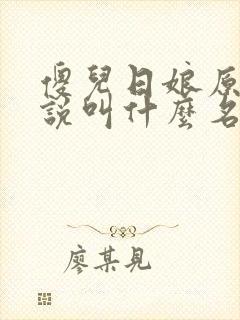 傻兒日娘原
說叫什麼名
廖某見